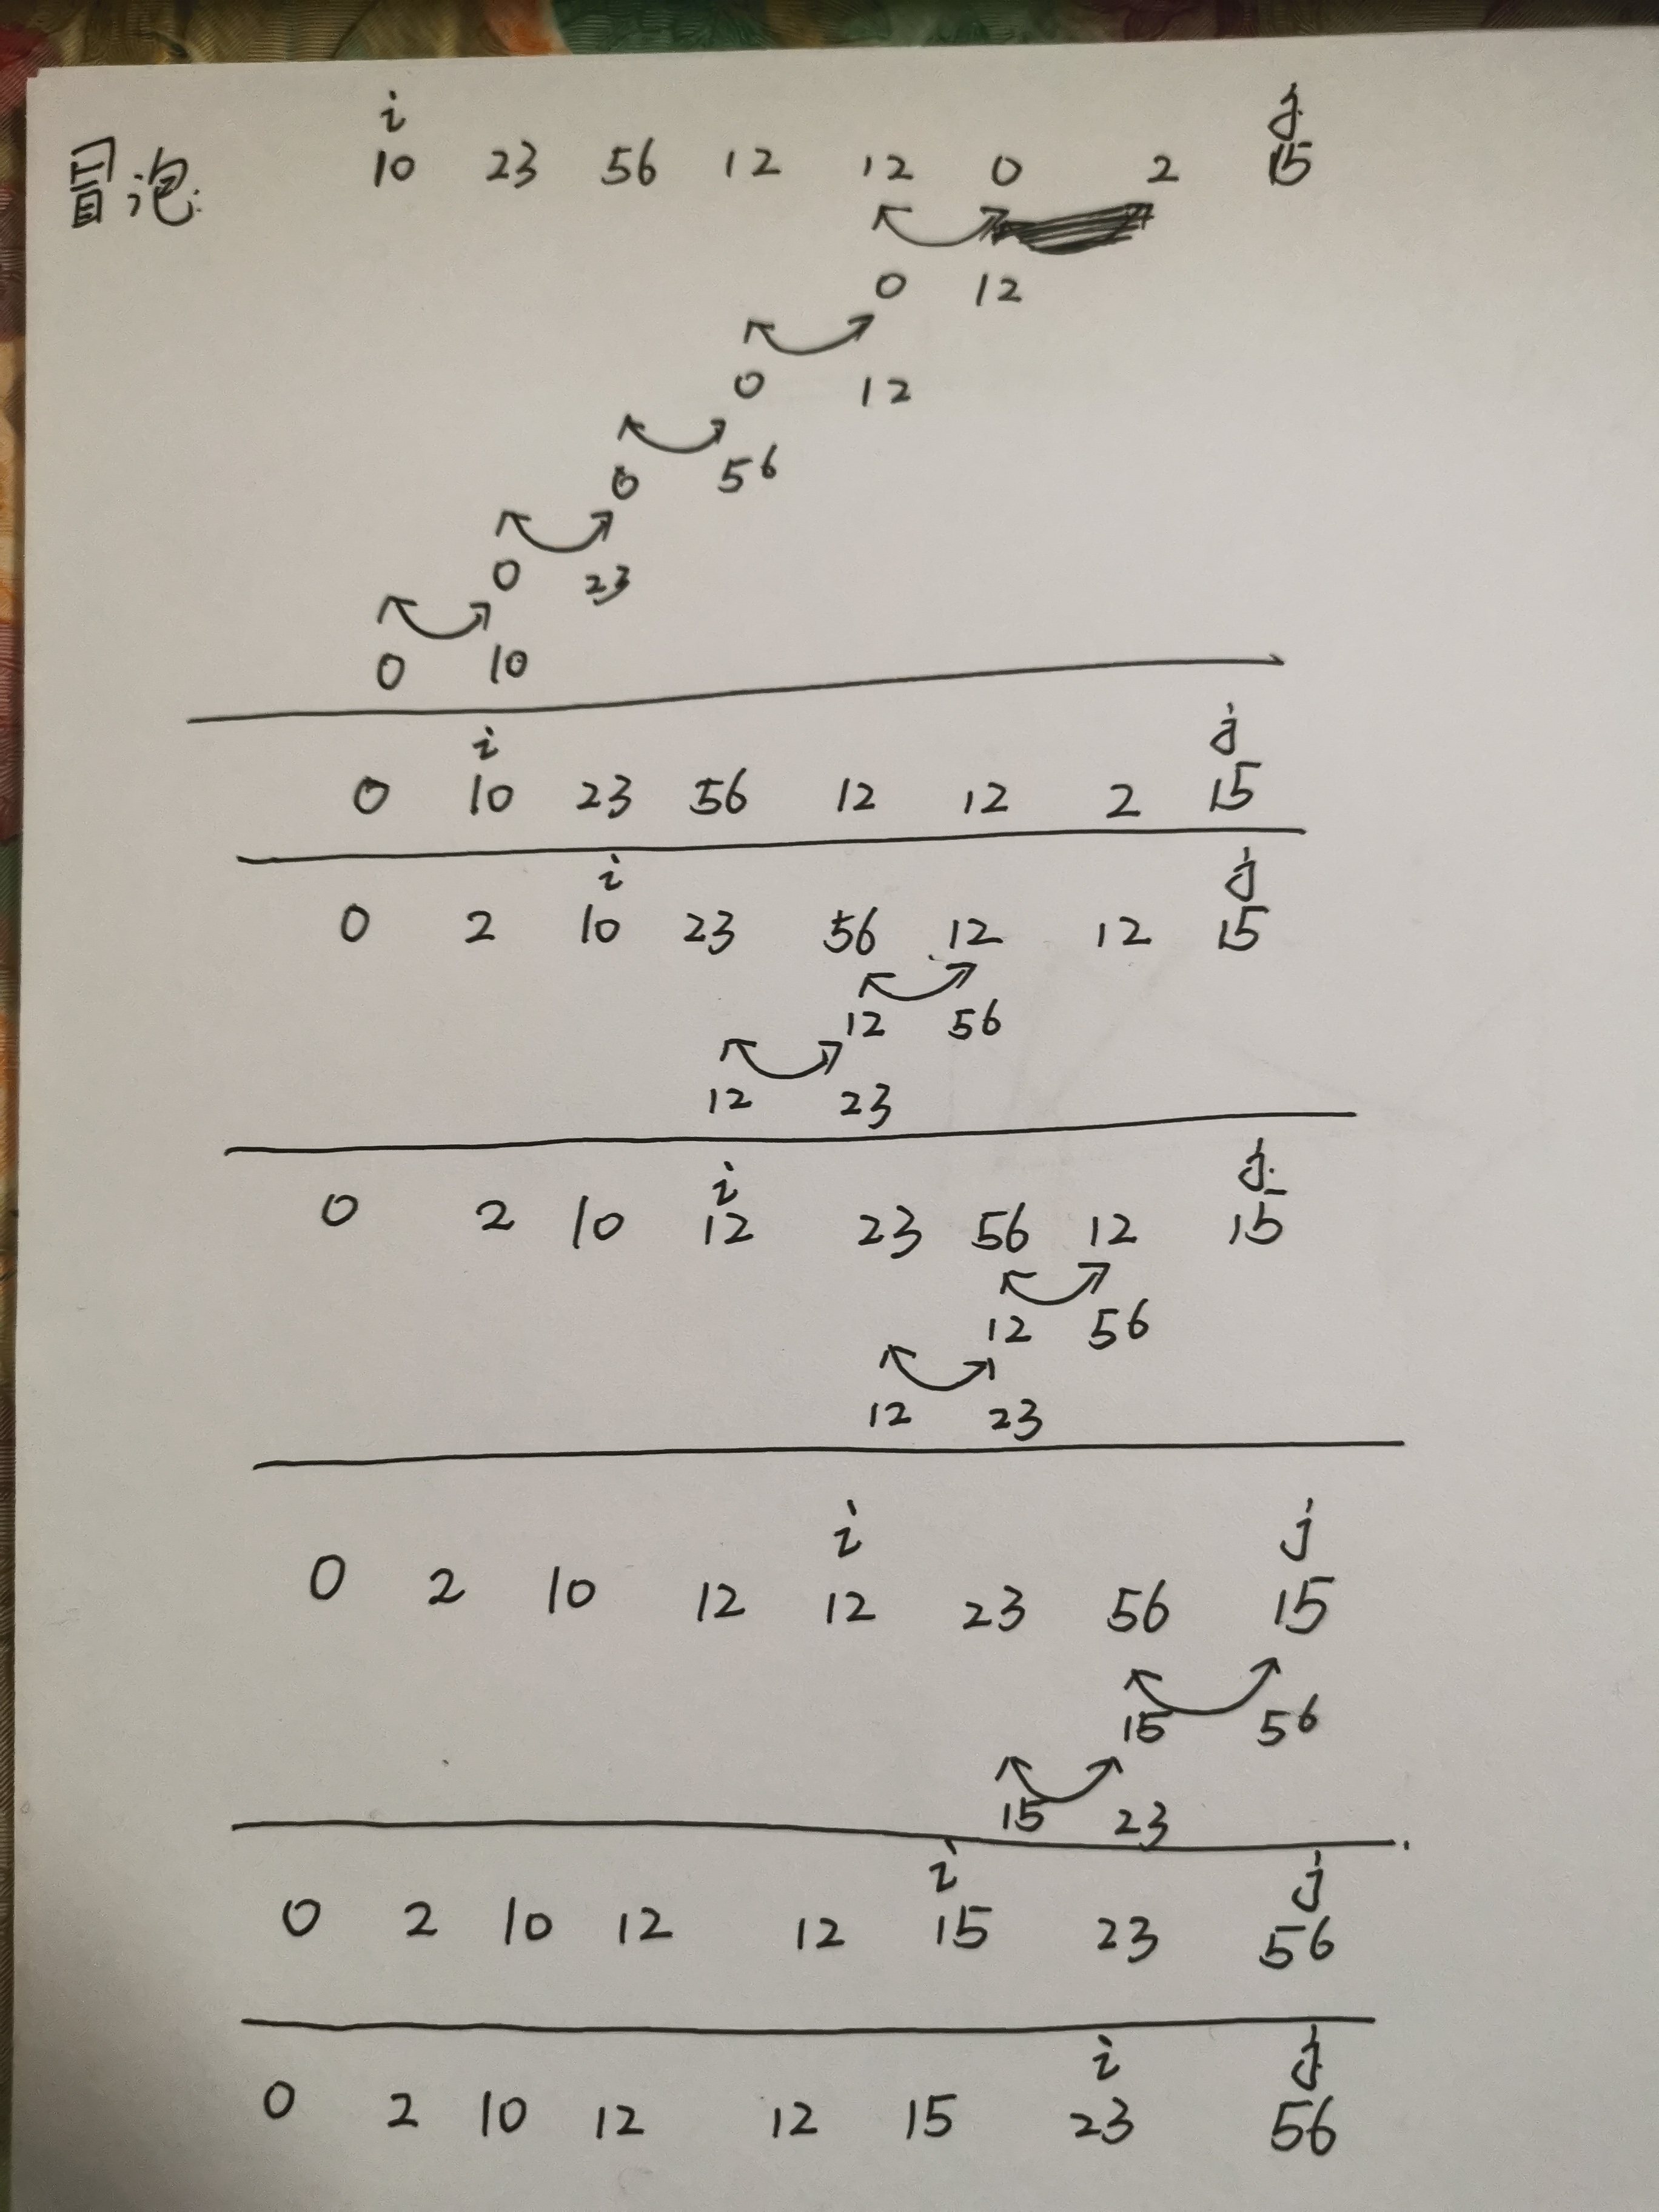 i j
冒泡: 10 23 56 12 12 0 2 15
0 12
0 12
0 56
0 23
0 10
i j
0 10 23 56 12 12 2 15
i j
0 2 10 23 56 12 12 15
12 56
12 23
i j
0 2 10 12 23 56 12 15
12 56
12 23
i j
0 2 10 12 12 23 56 15
15 56
15 23
i j
0 2 10 12 12 15 23 56
i j
0 2 10 12 12 15 23 56